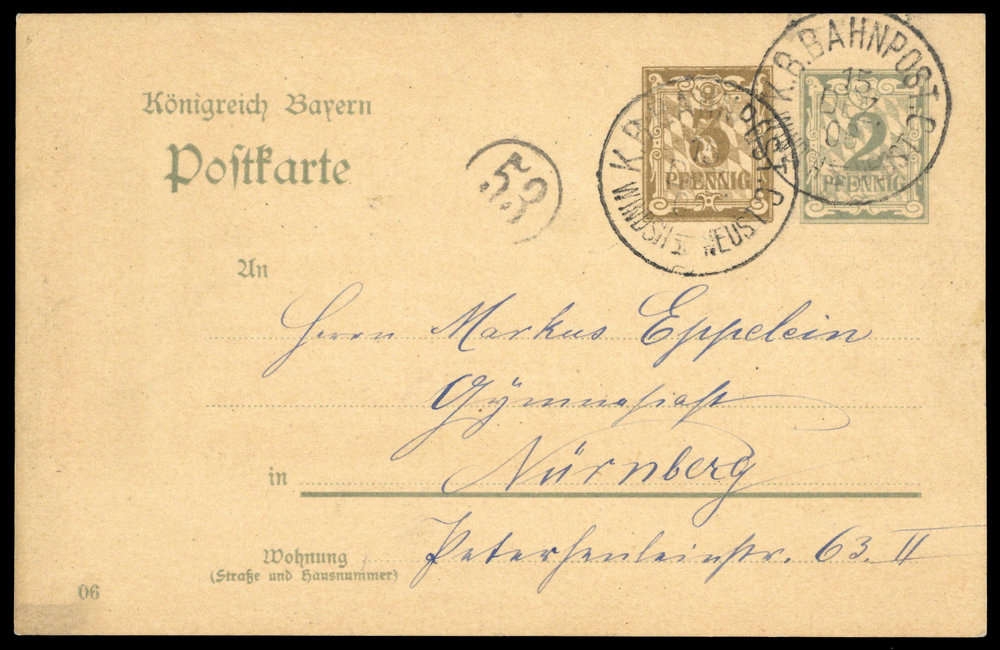 Königreich Bayern
Postkarte
53
3
PFENNIG
2
PFENNIG
K.B.BAHNPOST
15
WINDSH NEUST
K.B.BAHNPOST
15
An
Herrn Markus Eppelein
Gymnasiast
in Nürnberg
Wohnung
(Straße und Hausnummer)
Peterhenleinstr. 63. II
06